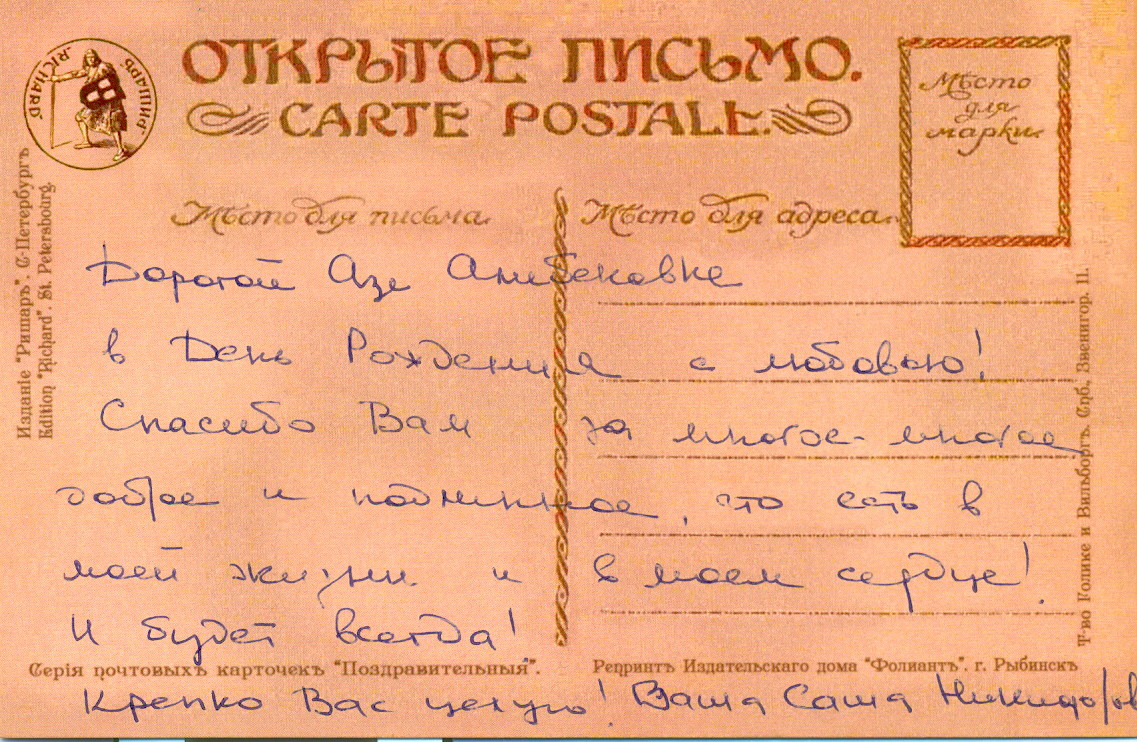 ОТКРЫТОЕ ПИСЬМО.
CARTE POSTALE.
РИШАРЪ. RICHARD
Мѣсто
для
марки
Мѣсто для письма.
Мѣсто для адреса.
Изданіе "Ришаръ". С-Петербургъ
Edition "Richard". St. Petersbourg.
Дорогой Азе Алибековне
в День Рождения с любовью!
Спасибо Вам за многое-многое
доброе и подлинное, что есть в
моей жизни и в моем сердце!
И будет всегда!
Серія почтовыхъ карточекъ "Поздравительныя".
Репринтъ Издательскаго дома "Фоліантъ". г. Рыбинскъ
Крепко Вас целую! Ваша Саша Никифоров
Т-во Голике и Вильборгъ. Спб., Звенигор. 11.